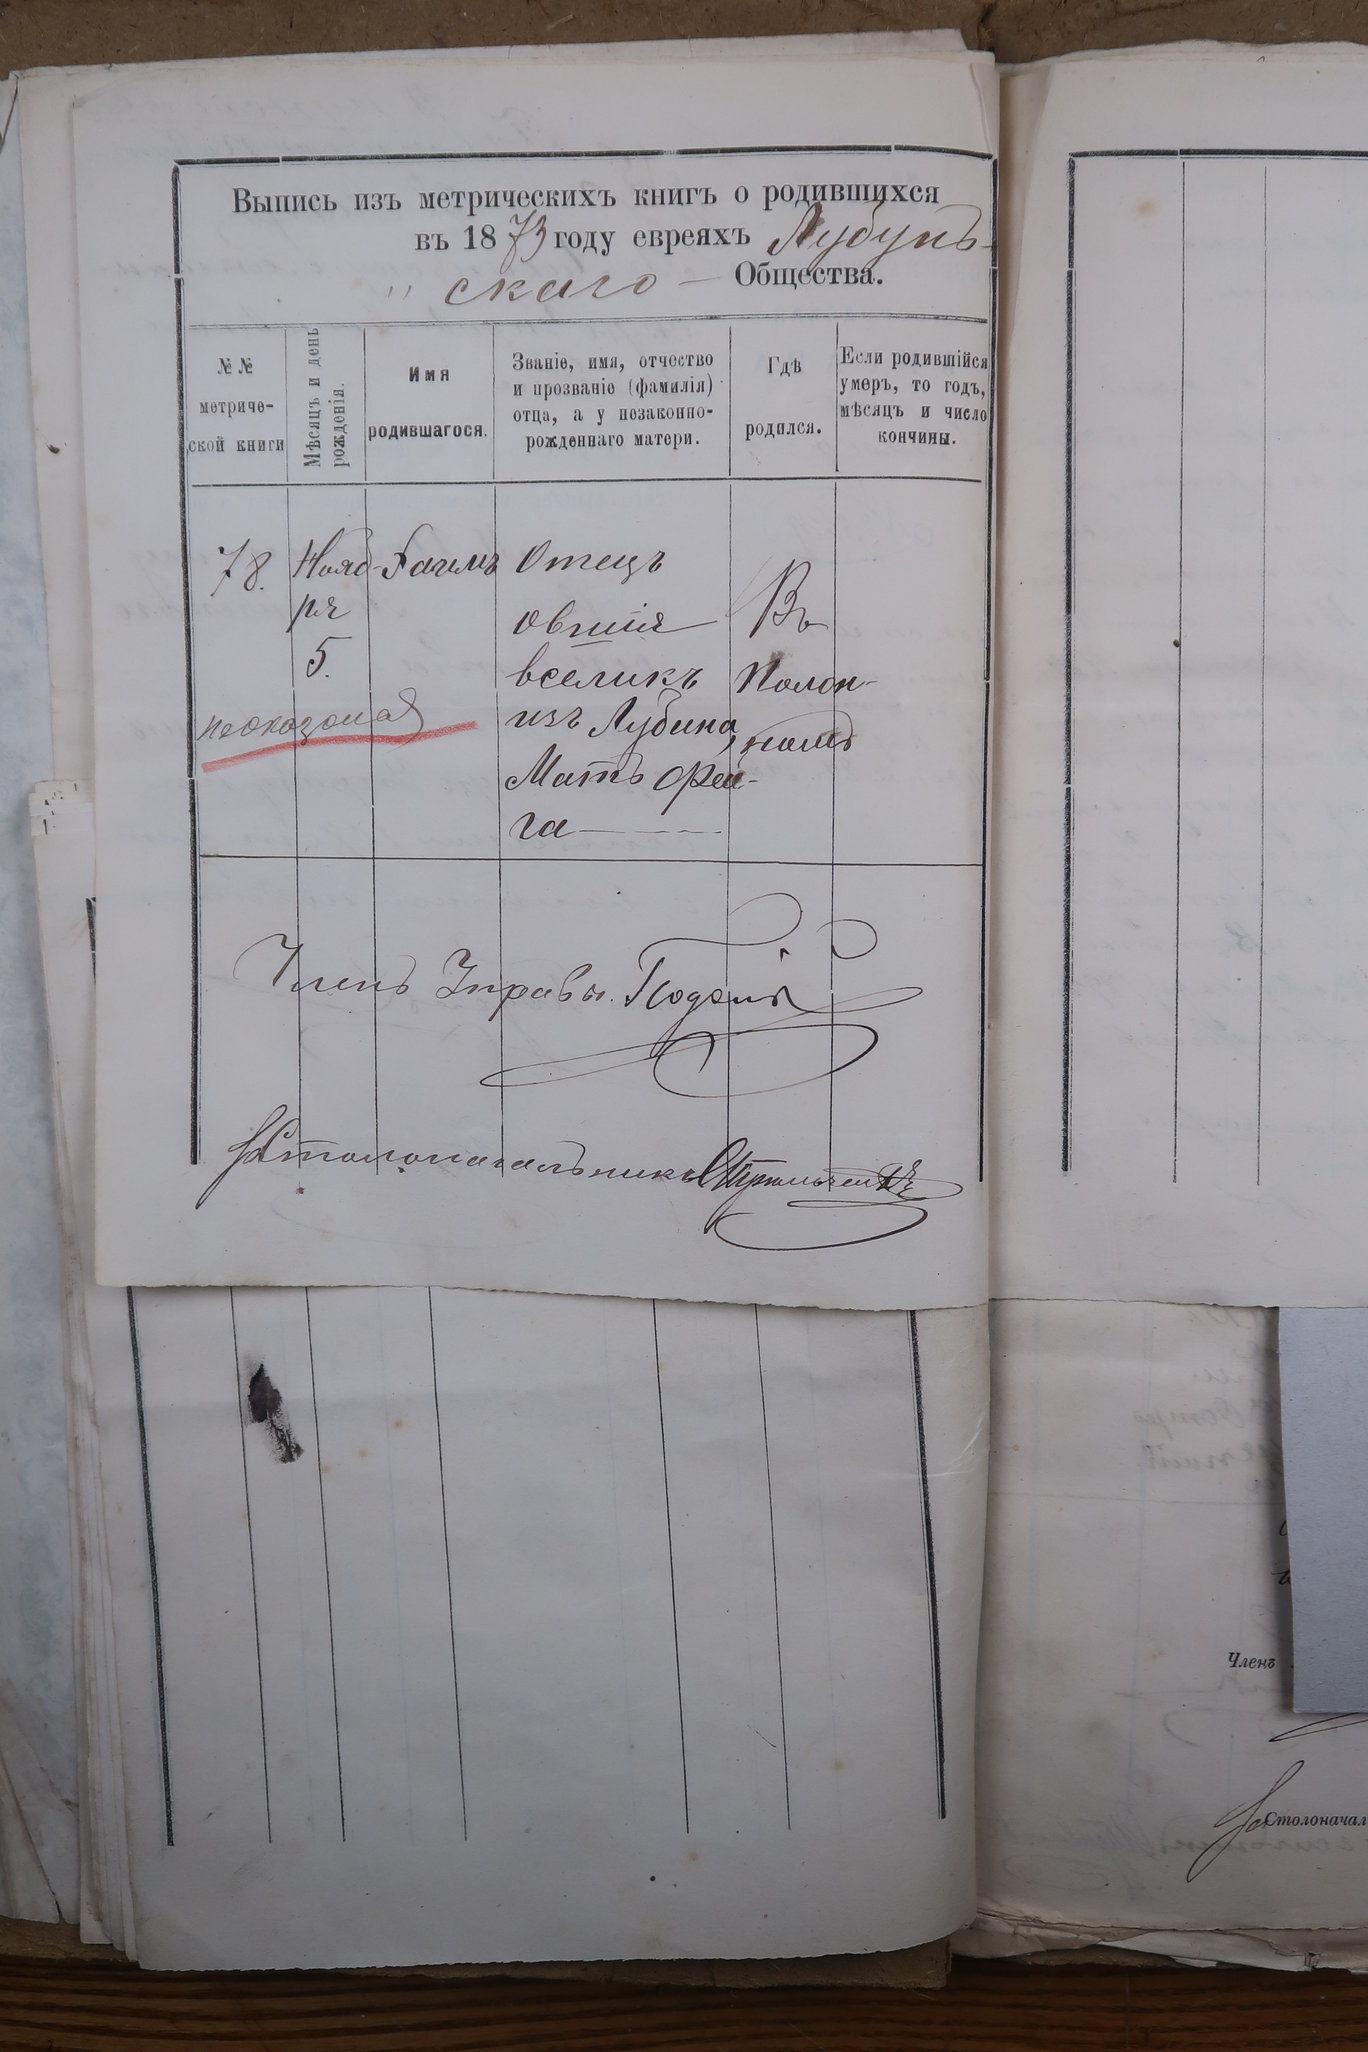 Выпись изъ метрическихъ книгъ о родившихся
въ 1873 году евреяхъ Лубунь-
" скаго — Общества.
№№ метриче-ской книги
Мѣсяцъ и день рожденія.
Имя родившагося.
Званіе, имя, отчество и прозваніе (фамилія) отца, а у незаконно-рожденнаго матери.
Гдѣ родился.
Если родившійся умеръ, то годъ, мѣсяцъ и число кончины.
78.
Нояб-
ря
5.
Хаимъ
Отецъ
Овшія
вселикъ
изъ Лубина,
Мать Фей-
га
Въ
Полон-
номъ
Членъ Управы
Столоначальникъ
Членъ
Столоначал